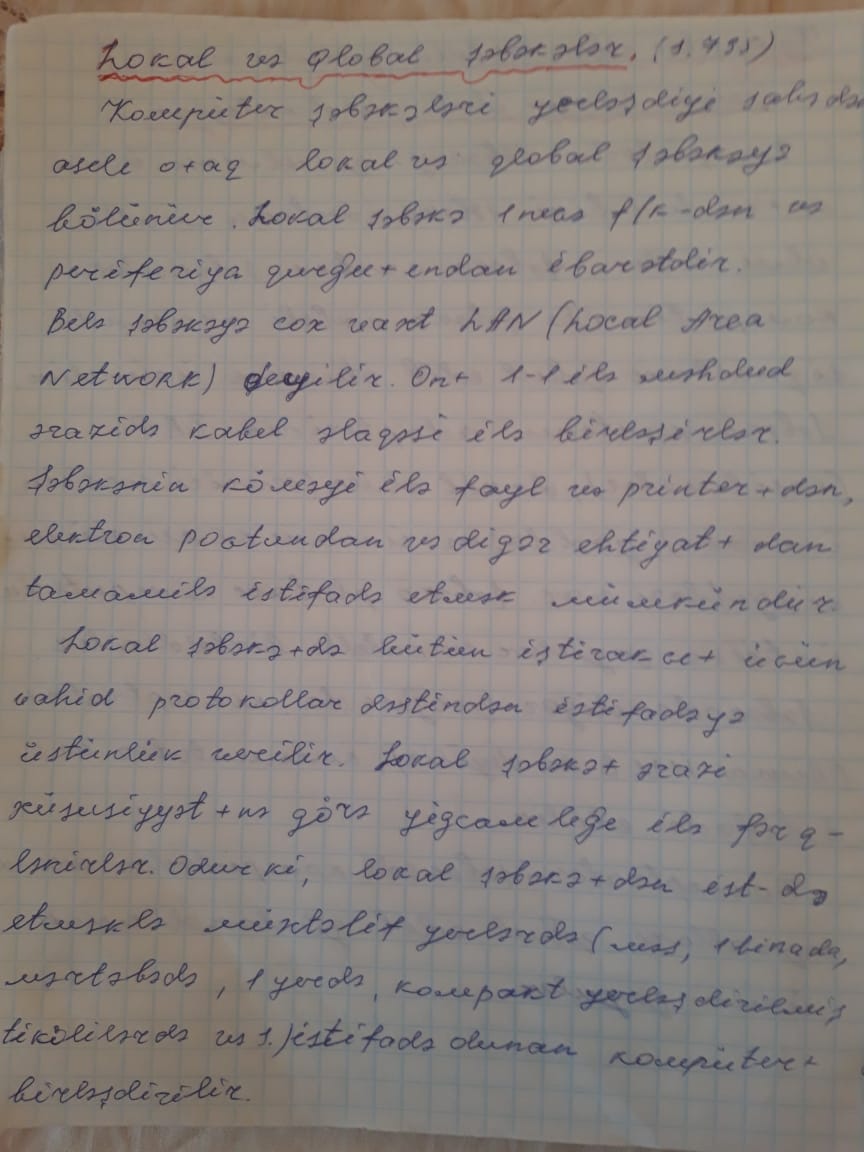 Lokal və Qlobal şəbəkələr. (s.795)
Kompüter şəbəkələri yerləşdiyi sahədən
asılı o+aq lokal və qlobal şəbəkəyə
bölünür. Lokal şəbəkə 1 neçə f/k-dən və
periferiya qurğu+ından ibarətdir.
Belə şəbəkəyə cox vaxt LAN (Local Area
Network) deyilir. On+ 1-1 ilə məhdud
ərazidə kabel əlaqəsi ilə birləşirlər.
Şəbəkənin köməyi ilə fayl və printer+dən,
elektron poctundan və digər ehtiyat+dan
tamamilə istifadə etmək mümkündür.
Lokal şəbəkə+də bütün iştirakcı+ ücün
vahid protokollar dəstindən istifadəyə
üstünlük verilir. Lokal şəbəkə+ ərazi
xüsusiyyət+nə görə yığcamlığı ilə fərq-
lənirlər. Odur ki, lokal şəbəkə+dən ist-də
etməklə müxtəlif yerlərdə (məs, 1 binada,
mərtəbədə, 1 yerdə, kompakt yerləşdirilmiş
tikililərdə və s.) istifadə olunan kompüter+
birləşdirilir.